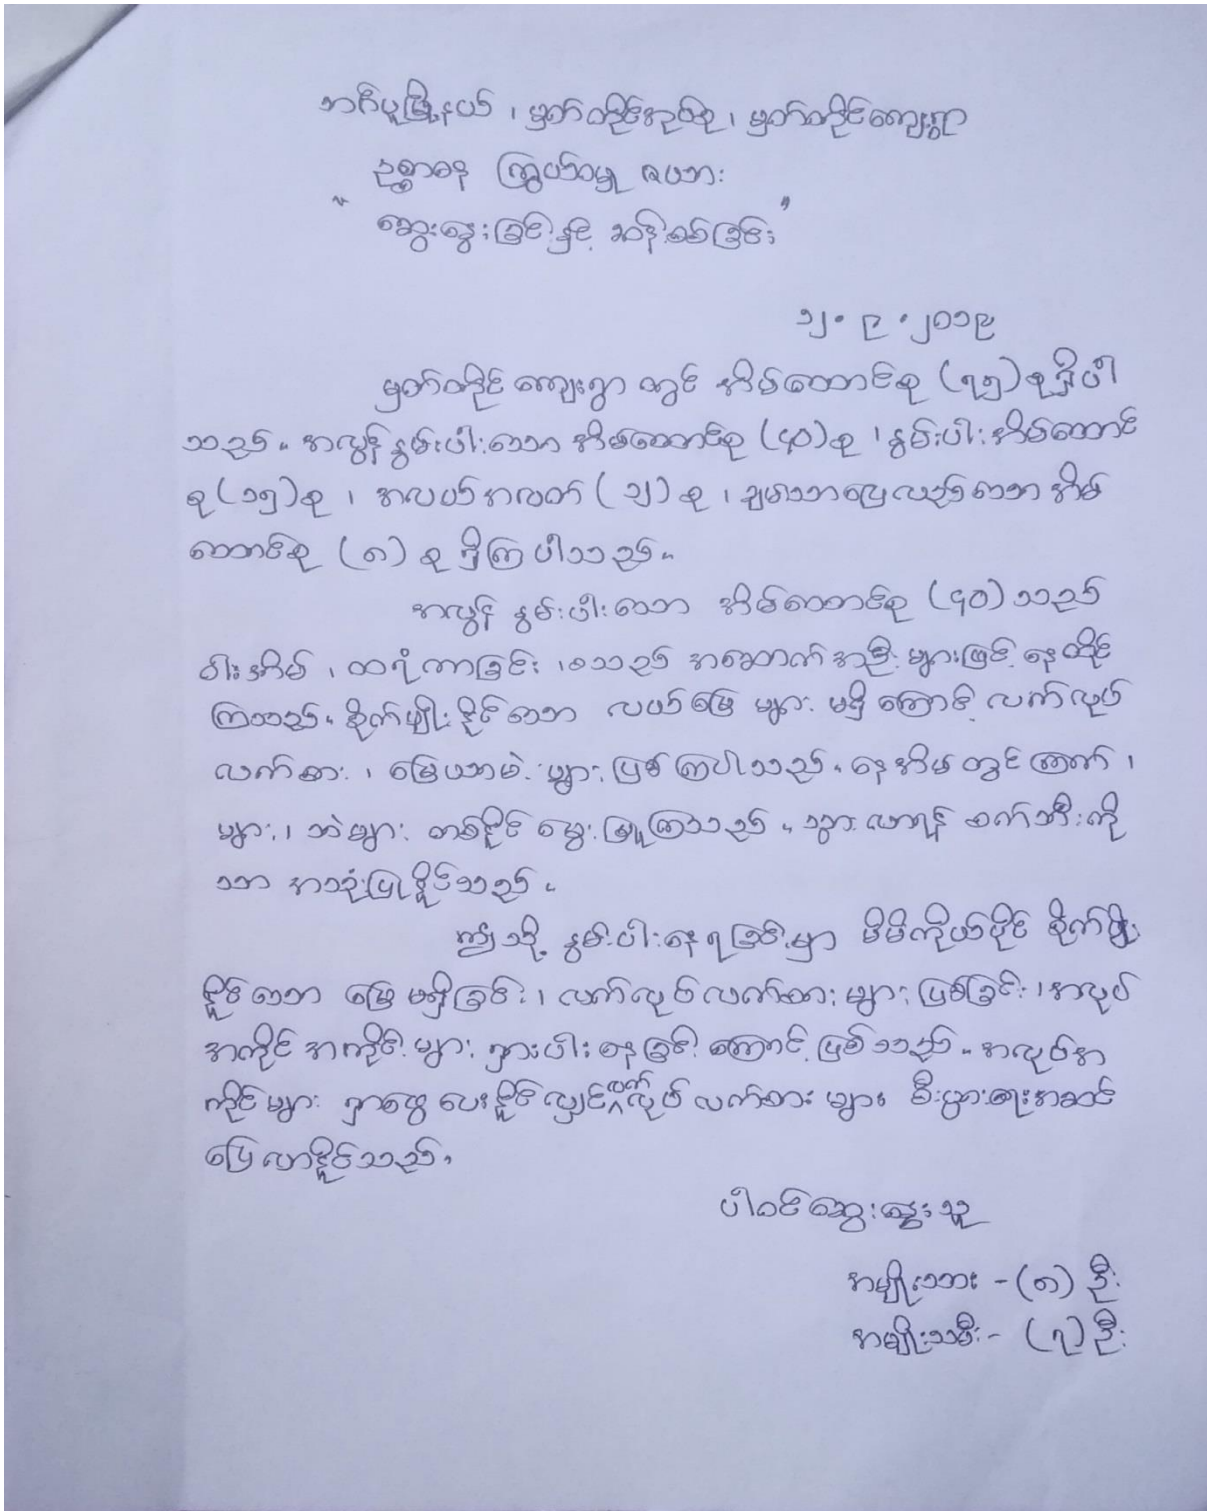 ဘင်္ဂပူမြို့နယ် ၊ မှတ်တိုင်အုပ်စု ၊ မှတ်တိုင်ကျေးရွာ
ဥစ္စာဓန ကြွယ်ဝမှု ဇယား
" ဆွေးနွေးခြင်းနှင့် ဆန်းစစ်ခြင်း "
၁၂.၉.၂၀၁၉
မှတ်တိုင် ကျေးရွာ တွင် အိမ်ထောင်စု (၇၅) စု ရှိပါ
သည်။ အလွန်နွမ်းပါးသော အိမ်ထောင်စု (၄၀) စု ၊ နွမ်းပါးအိမ်ထောင်
စု (၁၅) စု ၊ အလယ်အလတ် (၁၂) စု ၊ ချမ်းသာပြေလည်သော အိမ်
ထောင်စု (၈) စု ရှိကြပါသည်။
အလွန် နွမ်းပါးသော အိမ်ထောင်စု (၄၀) သည်
ဝါးအိမ် ၊ ထရံကာခြင်း ၊ စသည် အဆောက်အဦးများဖြင့် နေထိုင်
ကြသည်။ စိုက်ပျိုးနိုင်သော လယ်မြေ များ မရှိကြောင့် လက်လုပ်
လက်စား ၊ မြေယာမဲ့ များ ဖြစ်ကြပါသည်။ နေအိမ်တွင် ကြက် ၊
များ ၊ ဘဲများ တစ်နိုင် မွေးမြူကြသည်။ သွားလာရန် စက်ဘီးကို
သာ အသုံးပြုနိုင်သည်။
ဤသို့ နွမ်းပါးနေရခြင်းမှာ မိမိကိုယ်ပိုင် စိုက်ပျိုး
နိုင်သော မြေမရှိခြင်း ၊ လက်လုပ်လက်စားများ ဖြစ်ခြင်း ၊ အလုပ်
အကိုင် အကိုင်များ ရှားပါးနေခြင်းကြောင့် ဖြစ်သည်။ အလုပ်အ
ကိုင်များ ရှာဖွေပေးနိုင်လျှင် လက်လုပ်လက်စားများ စီးပွားရေးအဆင်
ပြေလာနိုင်သည်။
ပါဝင်ဆွေးနွေးသူ
အမျိုးသား - (၈) ဦး
အမျိုးသမီး - (၇) ဦး